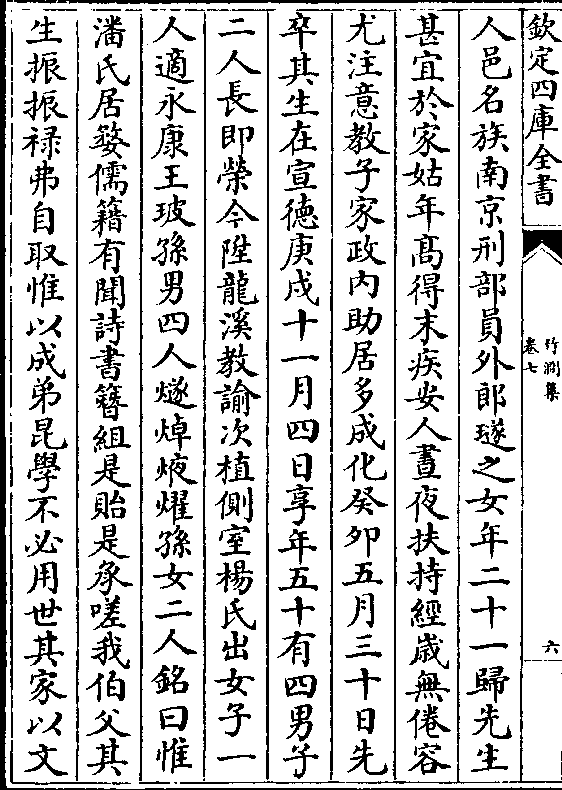 欽定四庫全書
竹澗集
卷七
六
人邑名族南京刑部員外郎璲之女年二十一歸先生
甚宜於家姑年髙得末疾安人晝夜扶持經歲無倦容
尤注意教子家政内助居多成化癸卯五月三十日先
卒其生在宣德庚戍十一月四日享年五十有四男子
二人長即榮今陞龍溪教諭次植側室楊氏出女子一
人適永康王玻孫男四人燧焯焲燿孫女二人銘曰惟
潘氏居婺儒籍有聞詩書簪組是貽是承嗟我伯父其
生振振禄弗自取惟以成弟昆學不必用世其家以文